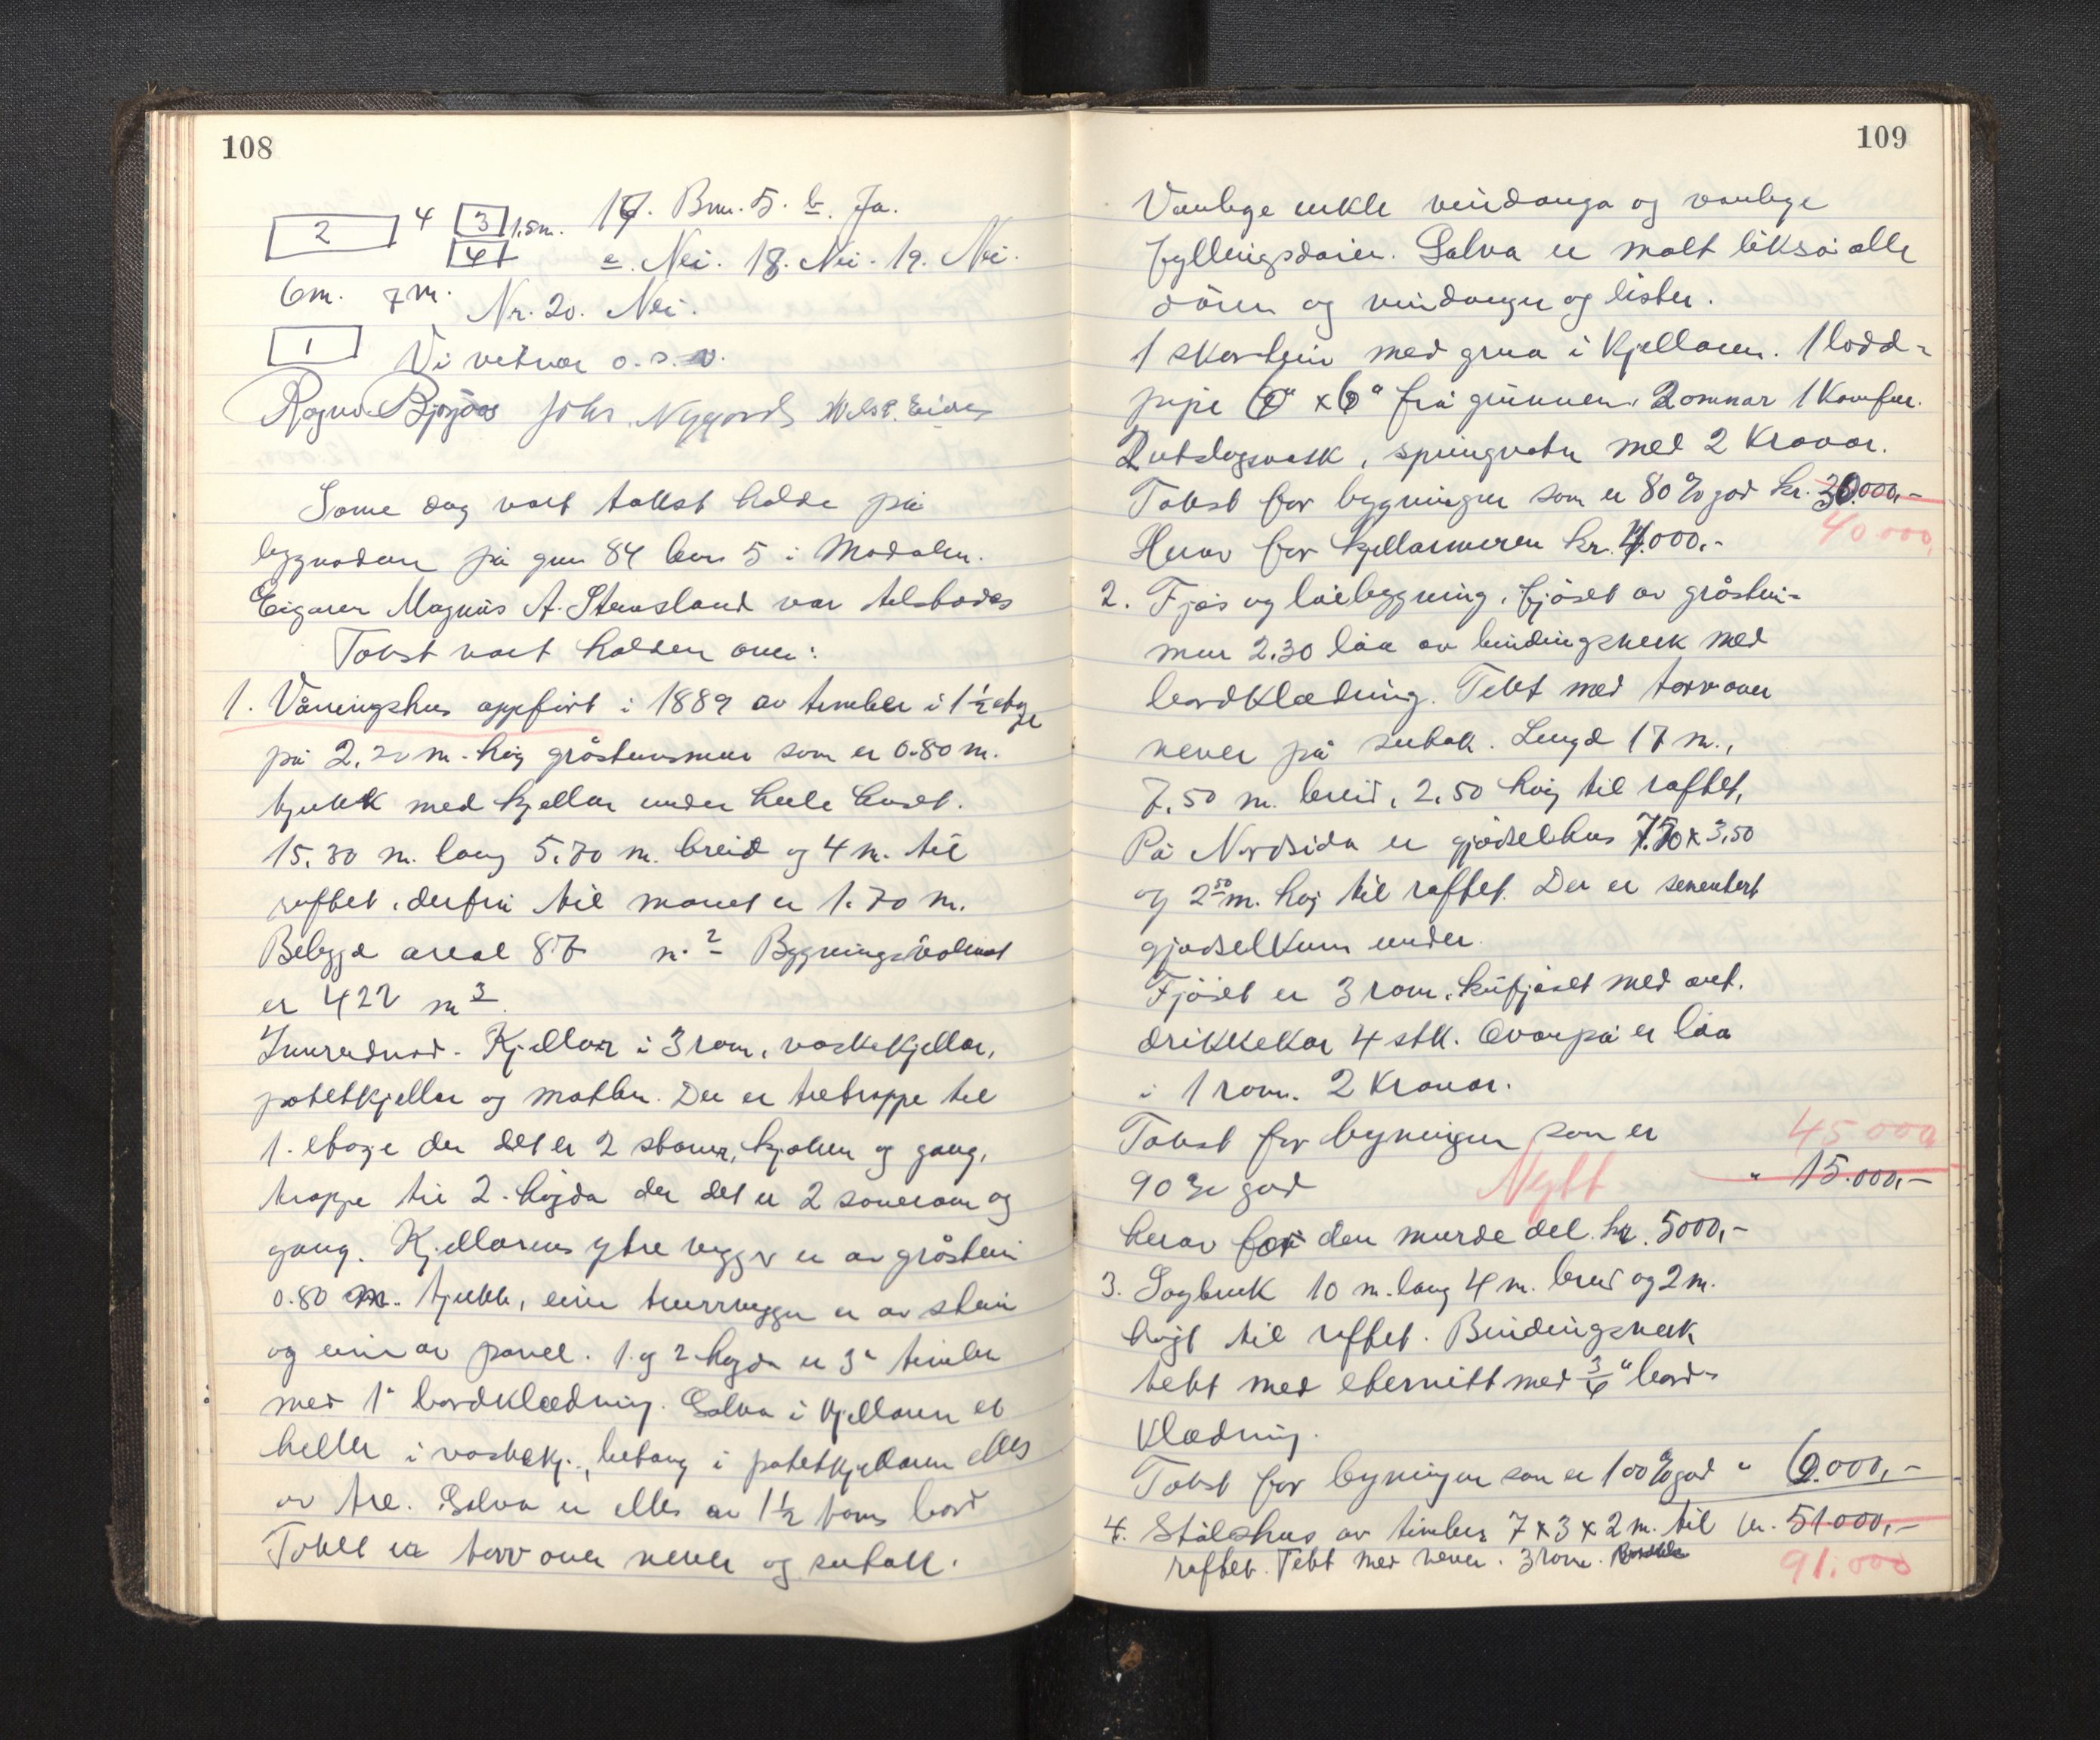 108
2 4 3 1,5m. 17. Bnr. 5. b. Ja.
4 c. Nei. 18. Nei. 19. Nei.
6m. 7m. Nr. 20. Nei.
1 Vi vitnar o.s.v.
Ragnv. Johs. Nygard Nils P. Eide
Same dag vart takst halde på
bygnadene på gnr 84 bnr 5 i Modalen.
Eigaren Magnús A. Steinsland var tilstades
Takst vart halden over:
1. Våningshus oppført i 1889 av tømber i 1½ etage
på 2,20 m. høg gråsteinsmur som er 0.80 m.
tjukk med kjellar under heile huset.
15,30 m. lang 5.70 m. breid og 4 m. til
raftet, derfrå til mønet er 1.70 m.
Bebygd areal 87 m.² Bygningsvolumet
er 422 m³.
Innreidnad. Kjellar i 3 rom, vaskekjellar,
potetkjellar og matbu. Der er tretrappe til
1. etage der det er 2 stover, kjøken og gang,
trappe til 2. høgda der det er 2 soverom og
gang. Kjellarens ytre vegger er av gråstein
0.80 m. tjukk, eine tverrveggen er av stein
og eine av panel. 1. og 2 høgda er 3" timber
med 1" bordklædning. Golva i kjellaren er
heller i vaskekj., betong i potetkjellaren elles
av tre. Golva er elles av 1½ toms bord
Taket er torv over never og sutak.
109
Vanlege enkle vindauga og vanlege
fyllingsdører. Golva er malt likså alle
dører og vindauger og lister.
1 skorstein med grua i kjellaren. 1 lodd-
pipe 6" x 6" frå grunnen, 2 omnar 1 Komfur.
2 utslagsvask, springvatn med 2 Kranar.
Takst for bygningen som er 80% god kr. 30.000,-
40 000,
Herav for kjellarmuren kr. 4.000.-
2. Fjøs og løebygning, fjøset av gråstein-
mur 2.30 løa av bindingsverk med
bordklædning. Tekt med torv over
never på sutak. Lengd 17 m.,
7,50 m. breid, 2,50 høg til raftet,
På Nordsida er gjødselhus 7,50 x 3,50
og 2⁵⁰ m. høg til raftet. Der er sementert
gjødselkum under.
Fjøset er 3 rom, kufjøset med aut.
drikkekar 4 stk. Ovanpå er løa
i 1 rom. 2 Kranar.
Takst for byningen som er 45 000
90% god Nytt " 15.000,-
herav for den murde del. kr. 5000,-
3. Sagbruk 10 m. lang 4 m. breid og 2 m.
høgt til raftet. Bindingsverk
tekt med eternitt med ¾" bord-
klædning.
Takst for byningen som er 100% god " 6.000,-
4. Stålshus av timber 7 x 3 x 2 m. til kr. 51.000,-
raftet. Tekt med never. 3 rom. 91.000